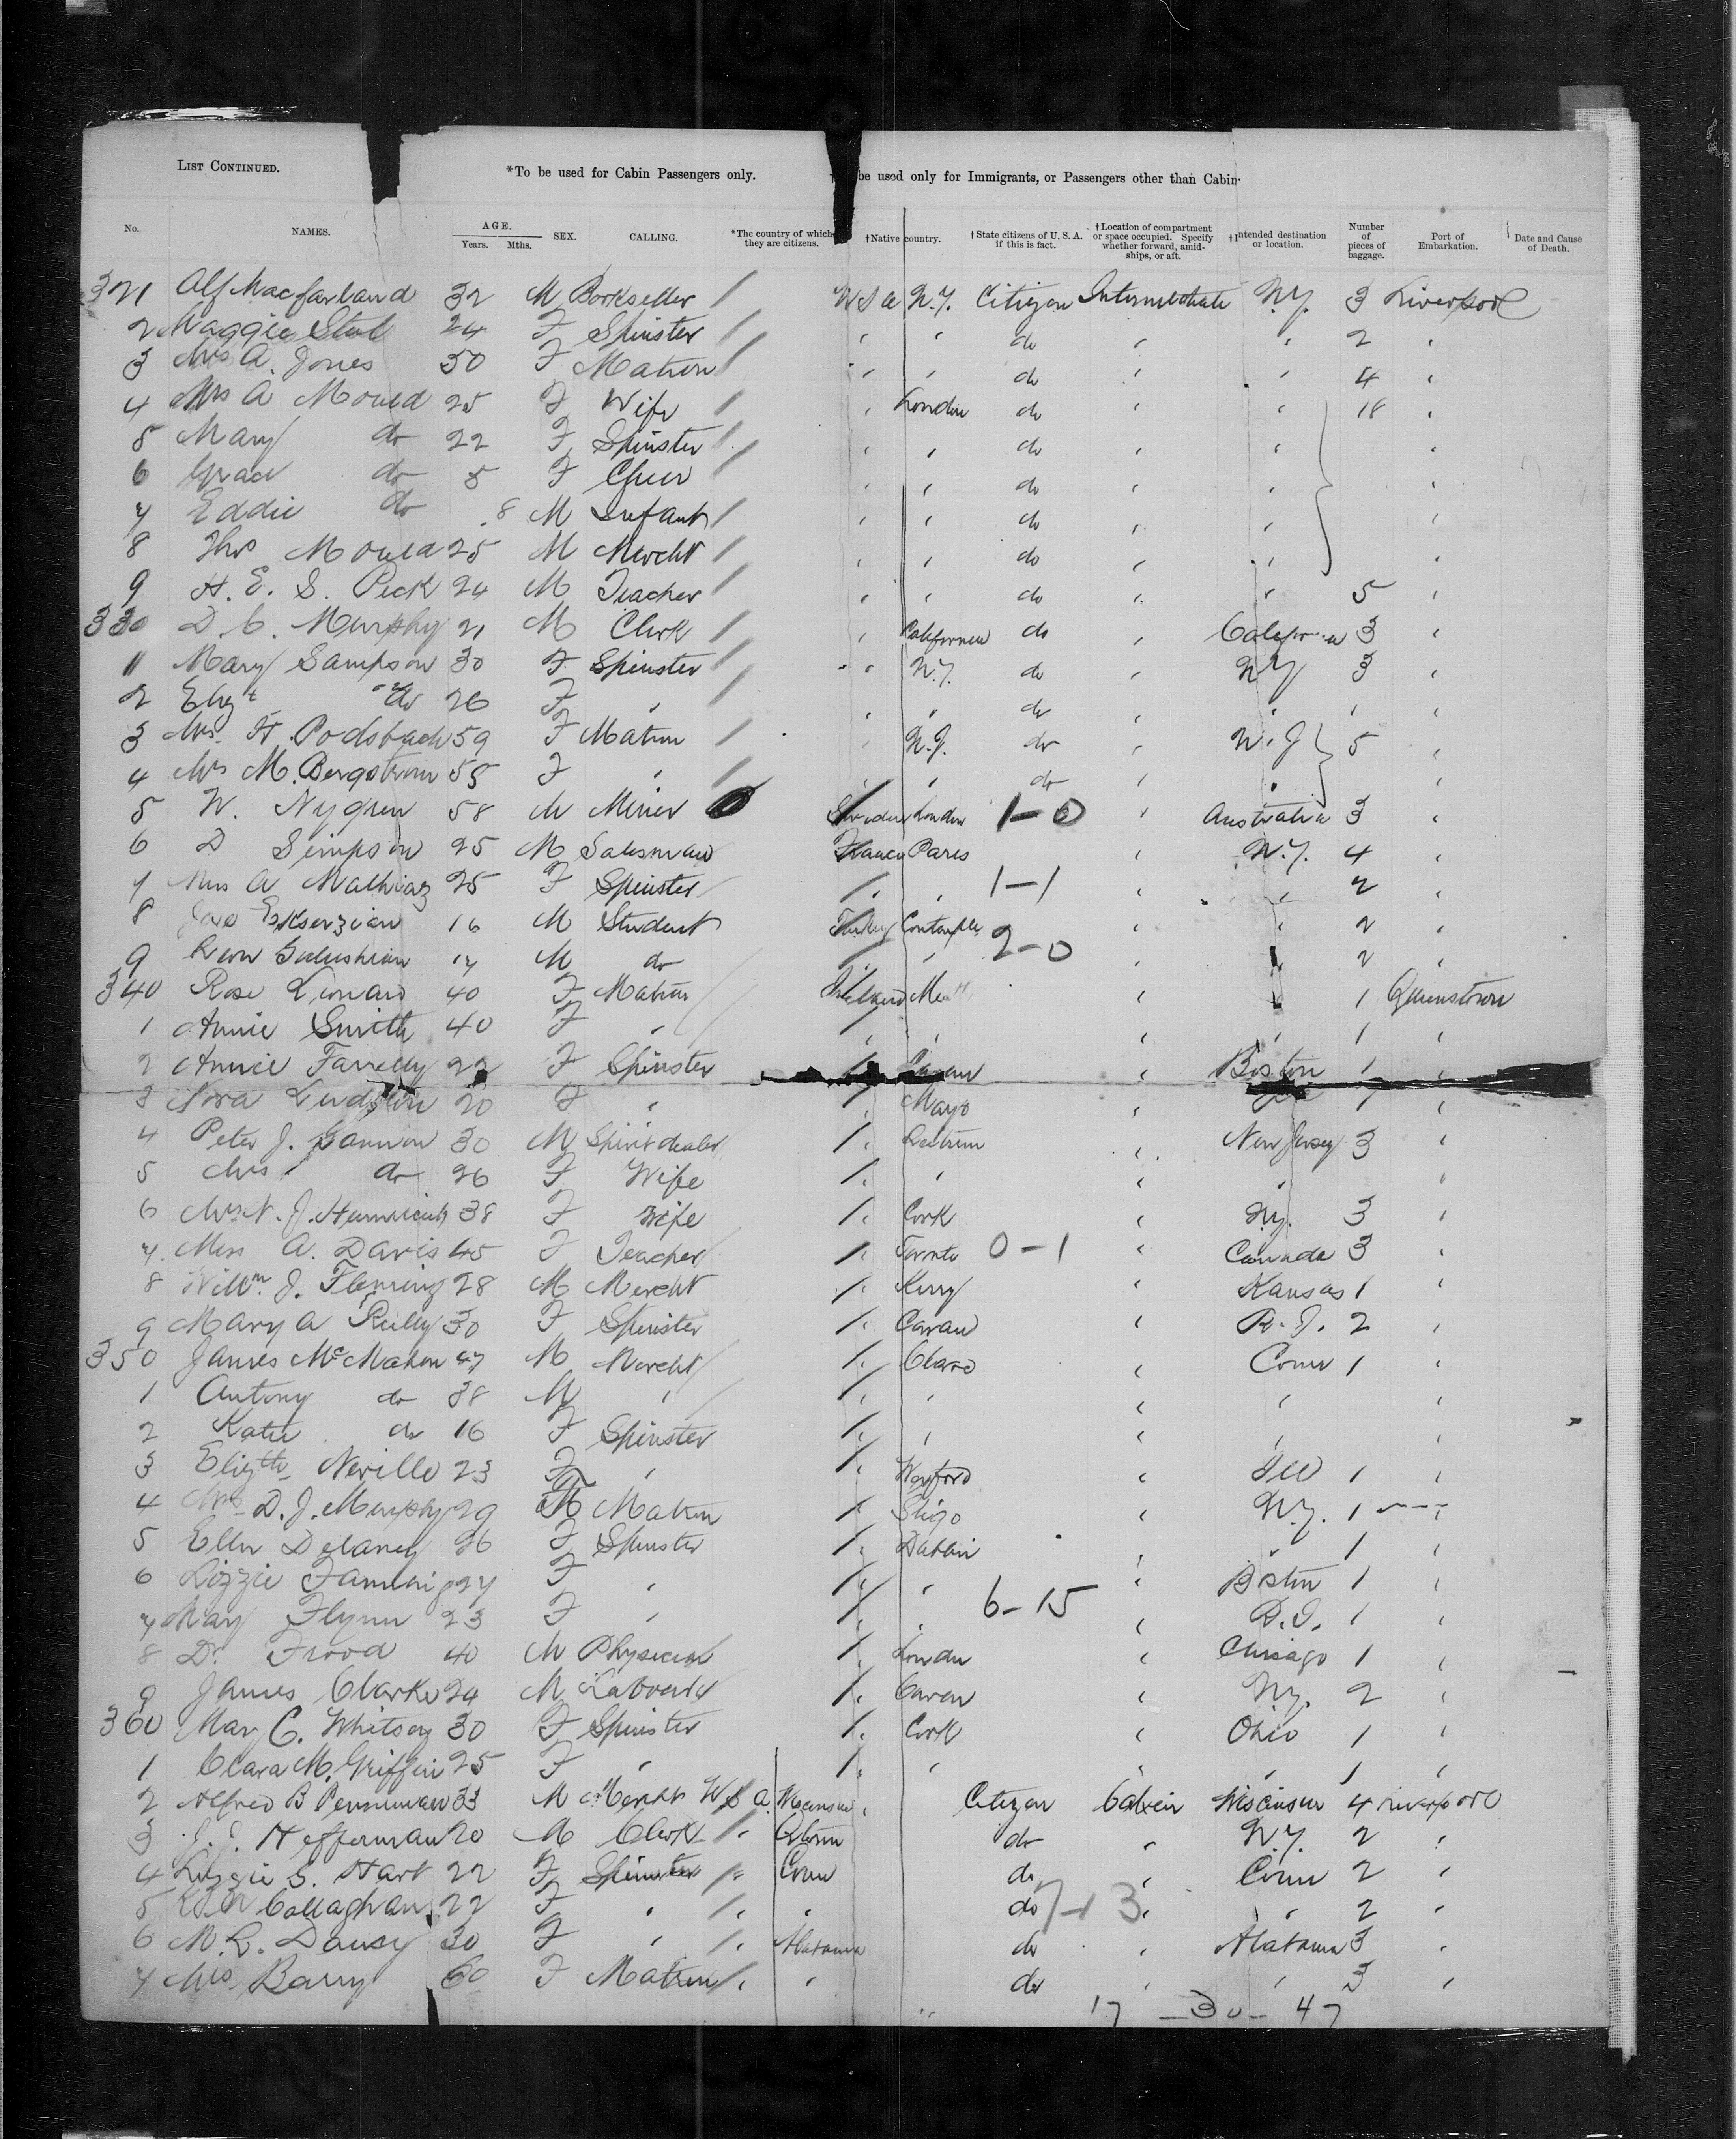 LIST CONTINUED. *To be used for Cabin Passengers only. be used only for Immigrants, or Passengers other than Cabin.
No. NAMES. AGE. Years. Mths. SEX. CALLING. *The country of which they are citizens. †Native country. †State citizens of U.S.A. if this is fact. †Location of compartment or space occupied. Specify whether forward, amidships, or aft. †Intended destination or location. Number of pieces of baggage. Port of Embarkation. Date and Cause of Death.
321 Alf Macfarland 32 M Bookseller / U S A N.Y. Citizen Intermediate N.Y. 3 Liverpool
2 Maggie 24 F Spinster / " " do " " 2 "
3 Mrs A. Jones 50 F Matron / " " do " " 4 "
4 Mrs A Mould 25 F Wife / " London do " " 18 "
5 Mary do 22 F Spinster / " " do " " "
6 Grace do 5 F / " " do " " "
7 Eddie do 8 M Infant / " " do " " "
8 Thos Mould 25 M Mercht / " " do " " "
9 H. E. S. Peck 24 M Teacher / " " do " " 5 "
330 D. C. Murphy 21 M Clerk / " California do " California 3 "
1 Mary Sampson 30 F Spinster / " N.Y. do " N Y 3 "
2 Elizt do 26 F " / " " do " " " "
3 Mrs H. Podsbach 59 F Matron / N.J. do " N.J 5 "
4 Mrs M. Bergstrom 55 F " / " " do " " "
5 W. Nygren 58 M Miner 0 Sweden London 1-0 " Australia 3 "
6 D Simpson 25 M Salesman France Paris " N.Y. 4 "
7 Mrs A Mathiaz 25 F Spinster / " " 1-1 " " 2 "
8 16 M Student Turkey " " 2 "
9 Leon 17 M do / " " 2-0 " " 2 "
340 Rose 40 F Matron Ireland " " 1 Queenstown
1 Annie Smith 40 F " / " " " " 1 "
2 Annie Farrelly 22 F Spinster / " Cavan " Boston 1 "
3 Nora 20 F " / " Mayo " 1 "
4 Peter J. Gannon 30 M Spirit dealer / " Leitrim " New Jersey 3 "
5 Mrs do 26 F Wife / " " " " "
6 Mrs N. J. 38 F Wife / " Cork " N.y. 3 "
7 Miss A. Davis 45 F Teacher / " Toronto 0-1 " Canada 3 "
8 Willm. J. Fleming 28 M Mercht / " Kerry " Kansas 1 "
9 Mary A Reilly 30 F Spinster / " Cavan " R.I. 2 "
350 James McMahon 47 M Mercht / " Clare " Conn 1 "
1 Antony do 38 M " / " " " " "
2 Katie do 16 F Spinster / " " " " "
3 Elizth Neville 23 F " / " Wexford " Ill 1 "
4 Mrs D. J. Murphy 29 F Matron / " Sligo " N.Y. 1 "
5 Ellen Delaney 26 F Spinster / " Dublin " " 1 "
6 Lizzie 27 F " / " " " Boston 1 "
7 Mary Flynn 23 F " / " " 6-15 " 1 "
8 Dr. Frood 40 M Physician / " London " Chicago 1 "
9 James Clarke 24 M / " Cavan " N.y. 2 "
360 Mary C. 30 F Spinster / " Cork " Ohio 1 "
1 Clara M. Griffin 25 F " / " " " " 1 "
2 Alfred B Penniman 33 M Mercht U S A Wisconsin " Citizen Cabin Wisconsin 4 Liverpool
3 J. J. Hefferman 20 M Clerk / " do " N.Y. 2 "
4 Lizzie S. Hart 22 F Spinster / " Conn do " Conn 2 "
5 Callaghan 22 F " / " " do 7-13 " " 2 "
6 M. L. 30 F " / " Alabama do " Alabama 3 "
7 Mrs Barry 60 F Matron / " " do " " 3 "
17 - 30 - 47